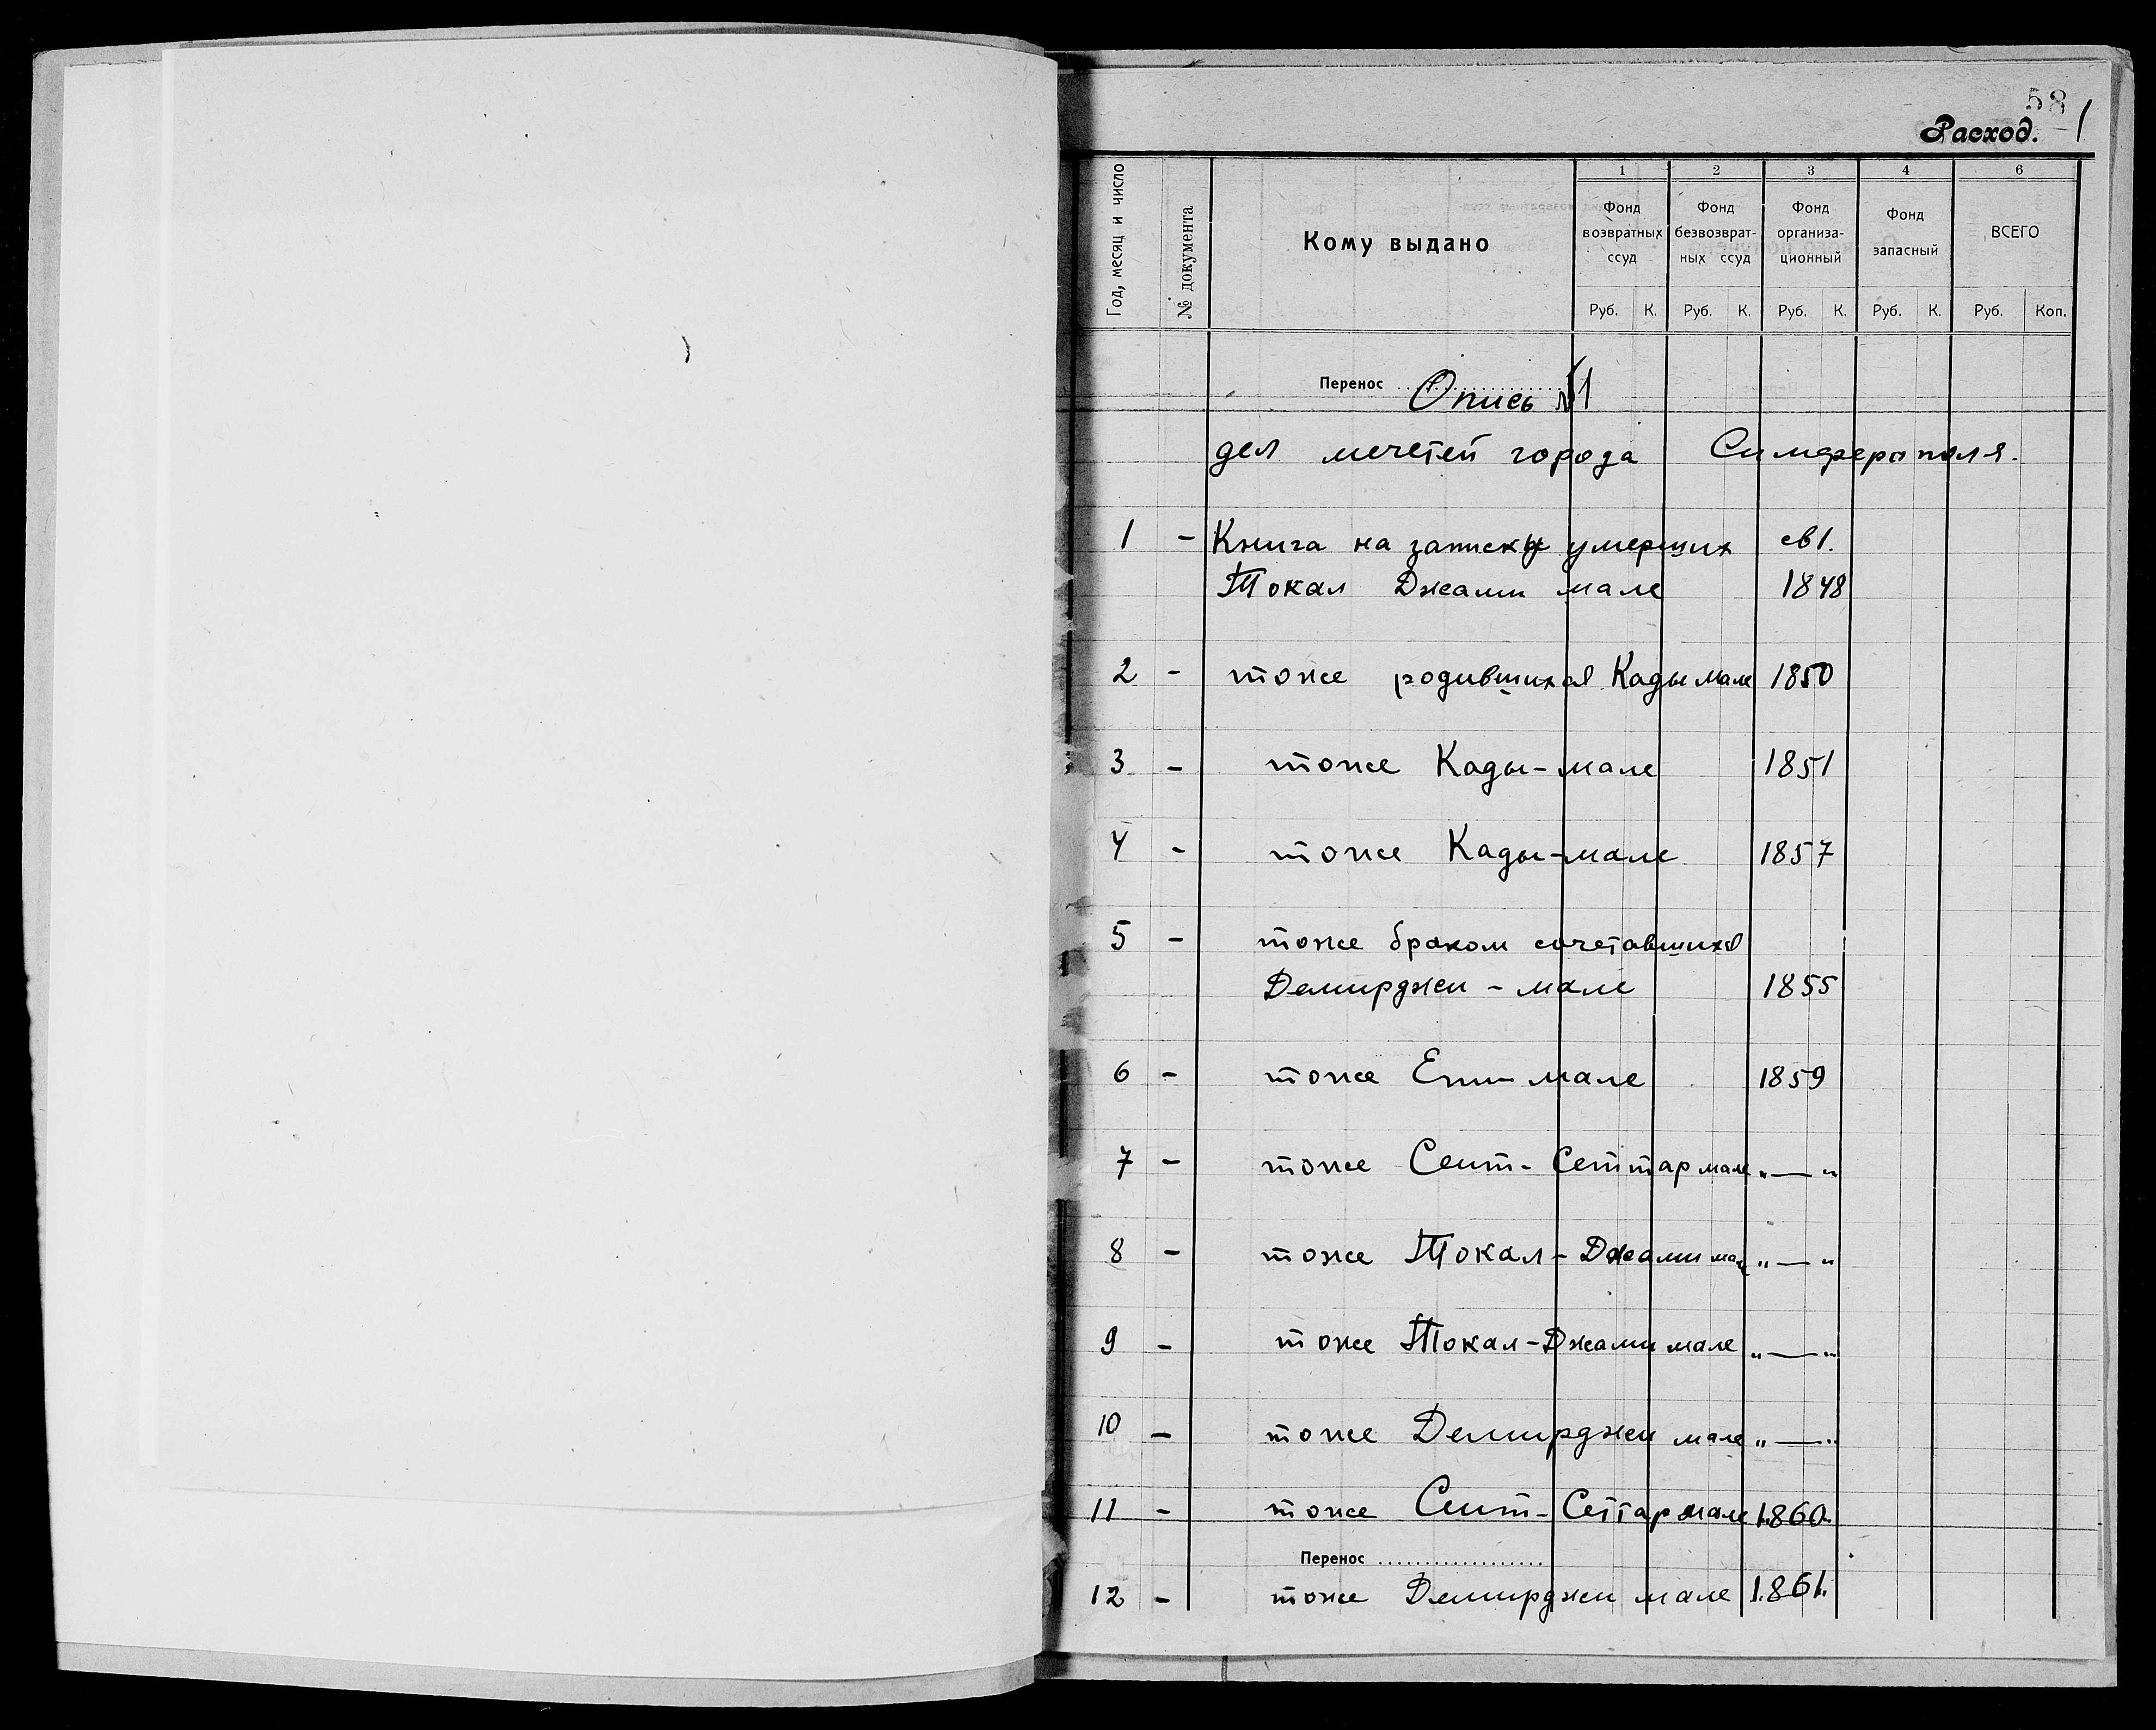 58
Расход. 1
Год, месяц и число
№ документа
Кому выдано
1 2 3 4 6
Фонд возвратных ссуд
Фонд безвозврат-ных ссуд
Фонд организа-ционный
Фонд запасный
ВСЕГО
Руб. К. Руб. К. Руб. К. Руб. К. Руб. Коп.
Перенос ...................
Опись №1
дел мечетей города Симферополя.
1 - Книга на записку умерших св1.
Токал Джами мале 1848
2 - тоже родившихся Кады мале 1850
3 - тоже Кады-мале 1851
4 - тоже Кады-мале 1857
5 - тоже браком сочетавшихся
Демирджи - мале 1855
6 - тоже Ени-мале 1859
7 - тоже Сеит-Сеттар мале "—"
8 - тоже Токал-Джами мале "—"
9 - тоже Токал-Джами мале "—"
10 - тоже Демирджи мале "—"
11 - тоже Сеит-Сеттар мале 1860
Перенос ...................
12 - тоже Демирджи мале 1861